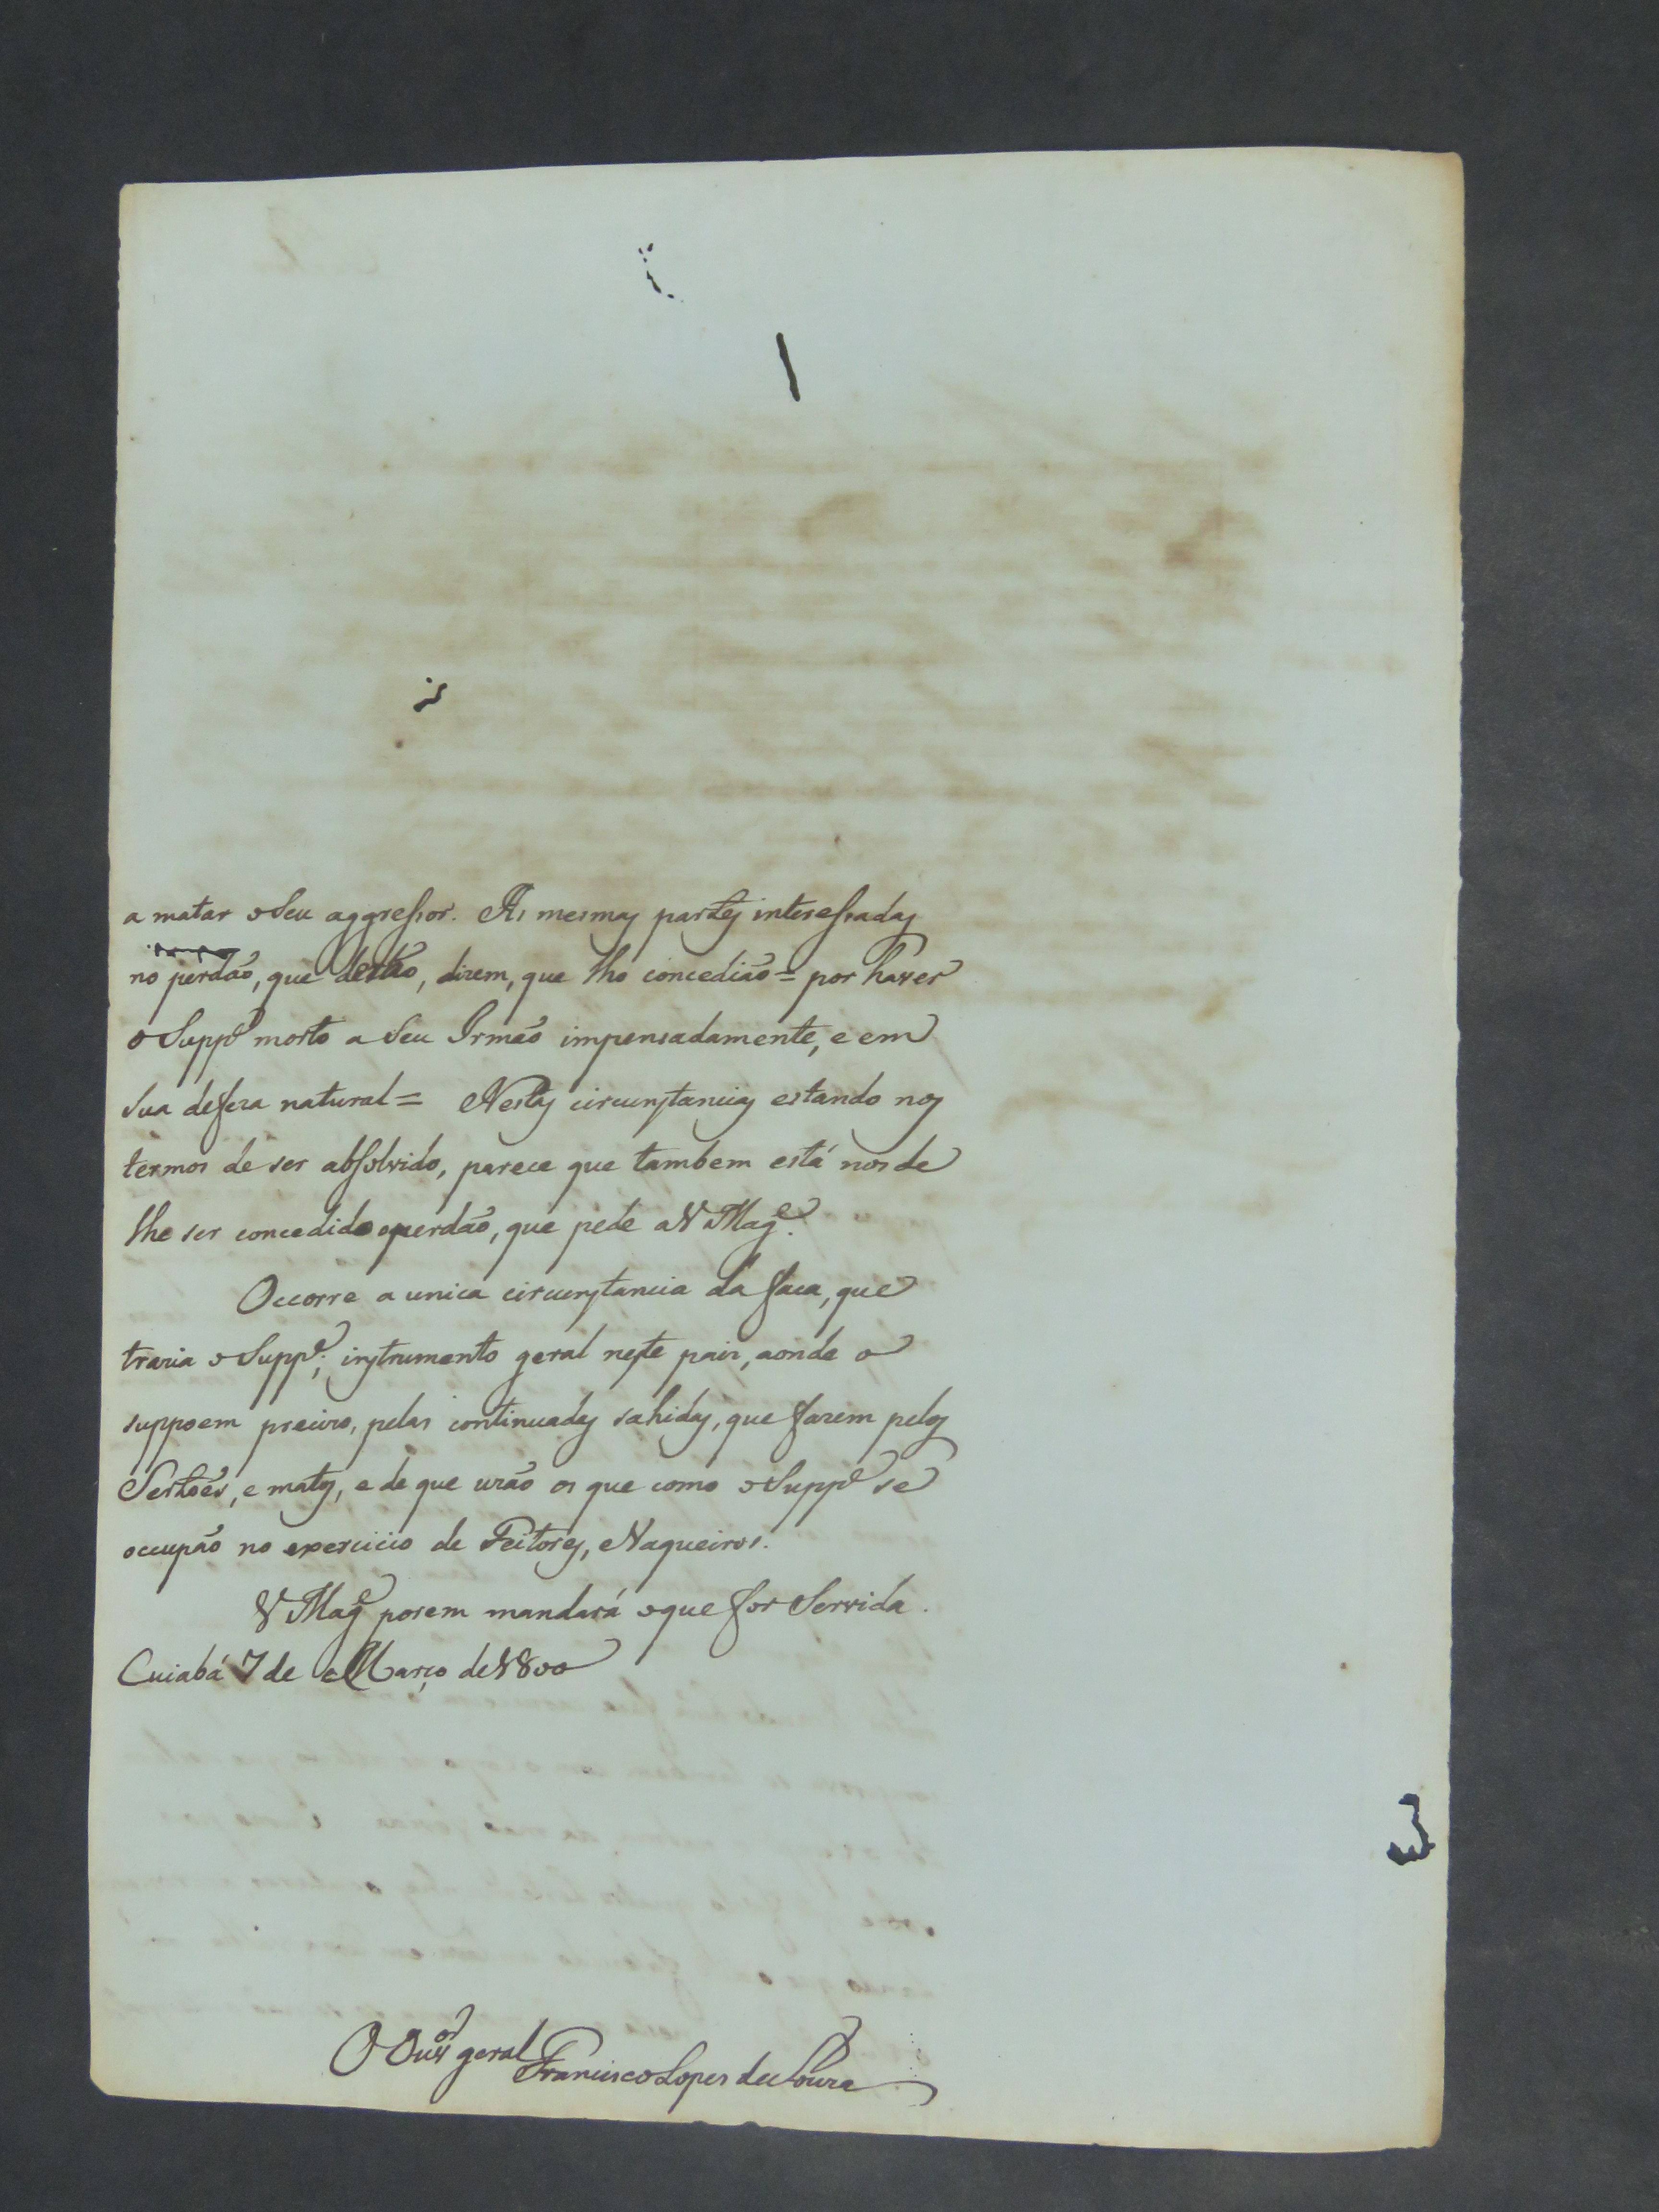 a matar o Seu aggressor. As mesmas partes interessadas
no perdão, que derão, dizem, que lho concedião = por haver
o Supp.e morto a Seu Irmão impensadamente, e em
Sua defeza natural = Nestas circunstancias estando nos
termos de ser absolvido, parece que tambem está nos de
lhe ser concedido o perdão, que pede a V Mag.e
Occorre a unica circunstancia da faca, que
trazia o Supp.e; instrumento geral neste paiz, aonde o
suppoem preciso, pelas continuadas sahidas, que fazem pelos
Sertoẽs, e matos, e de que uzão os que como o Supp.e se
occupão no exercicio de Feitores, e Vaqueiros.
V Mag.e porem mandará o que for Servida.
Cuiabá 7 de Março de 1800
O Ouv.or geral
Francisco Lopes de Souza